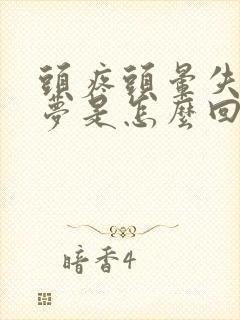 頭疼頭暈失
夢是怎麼回
暗香4